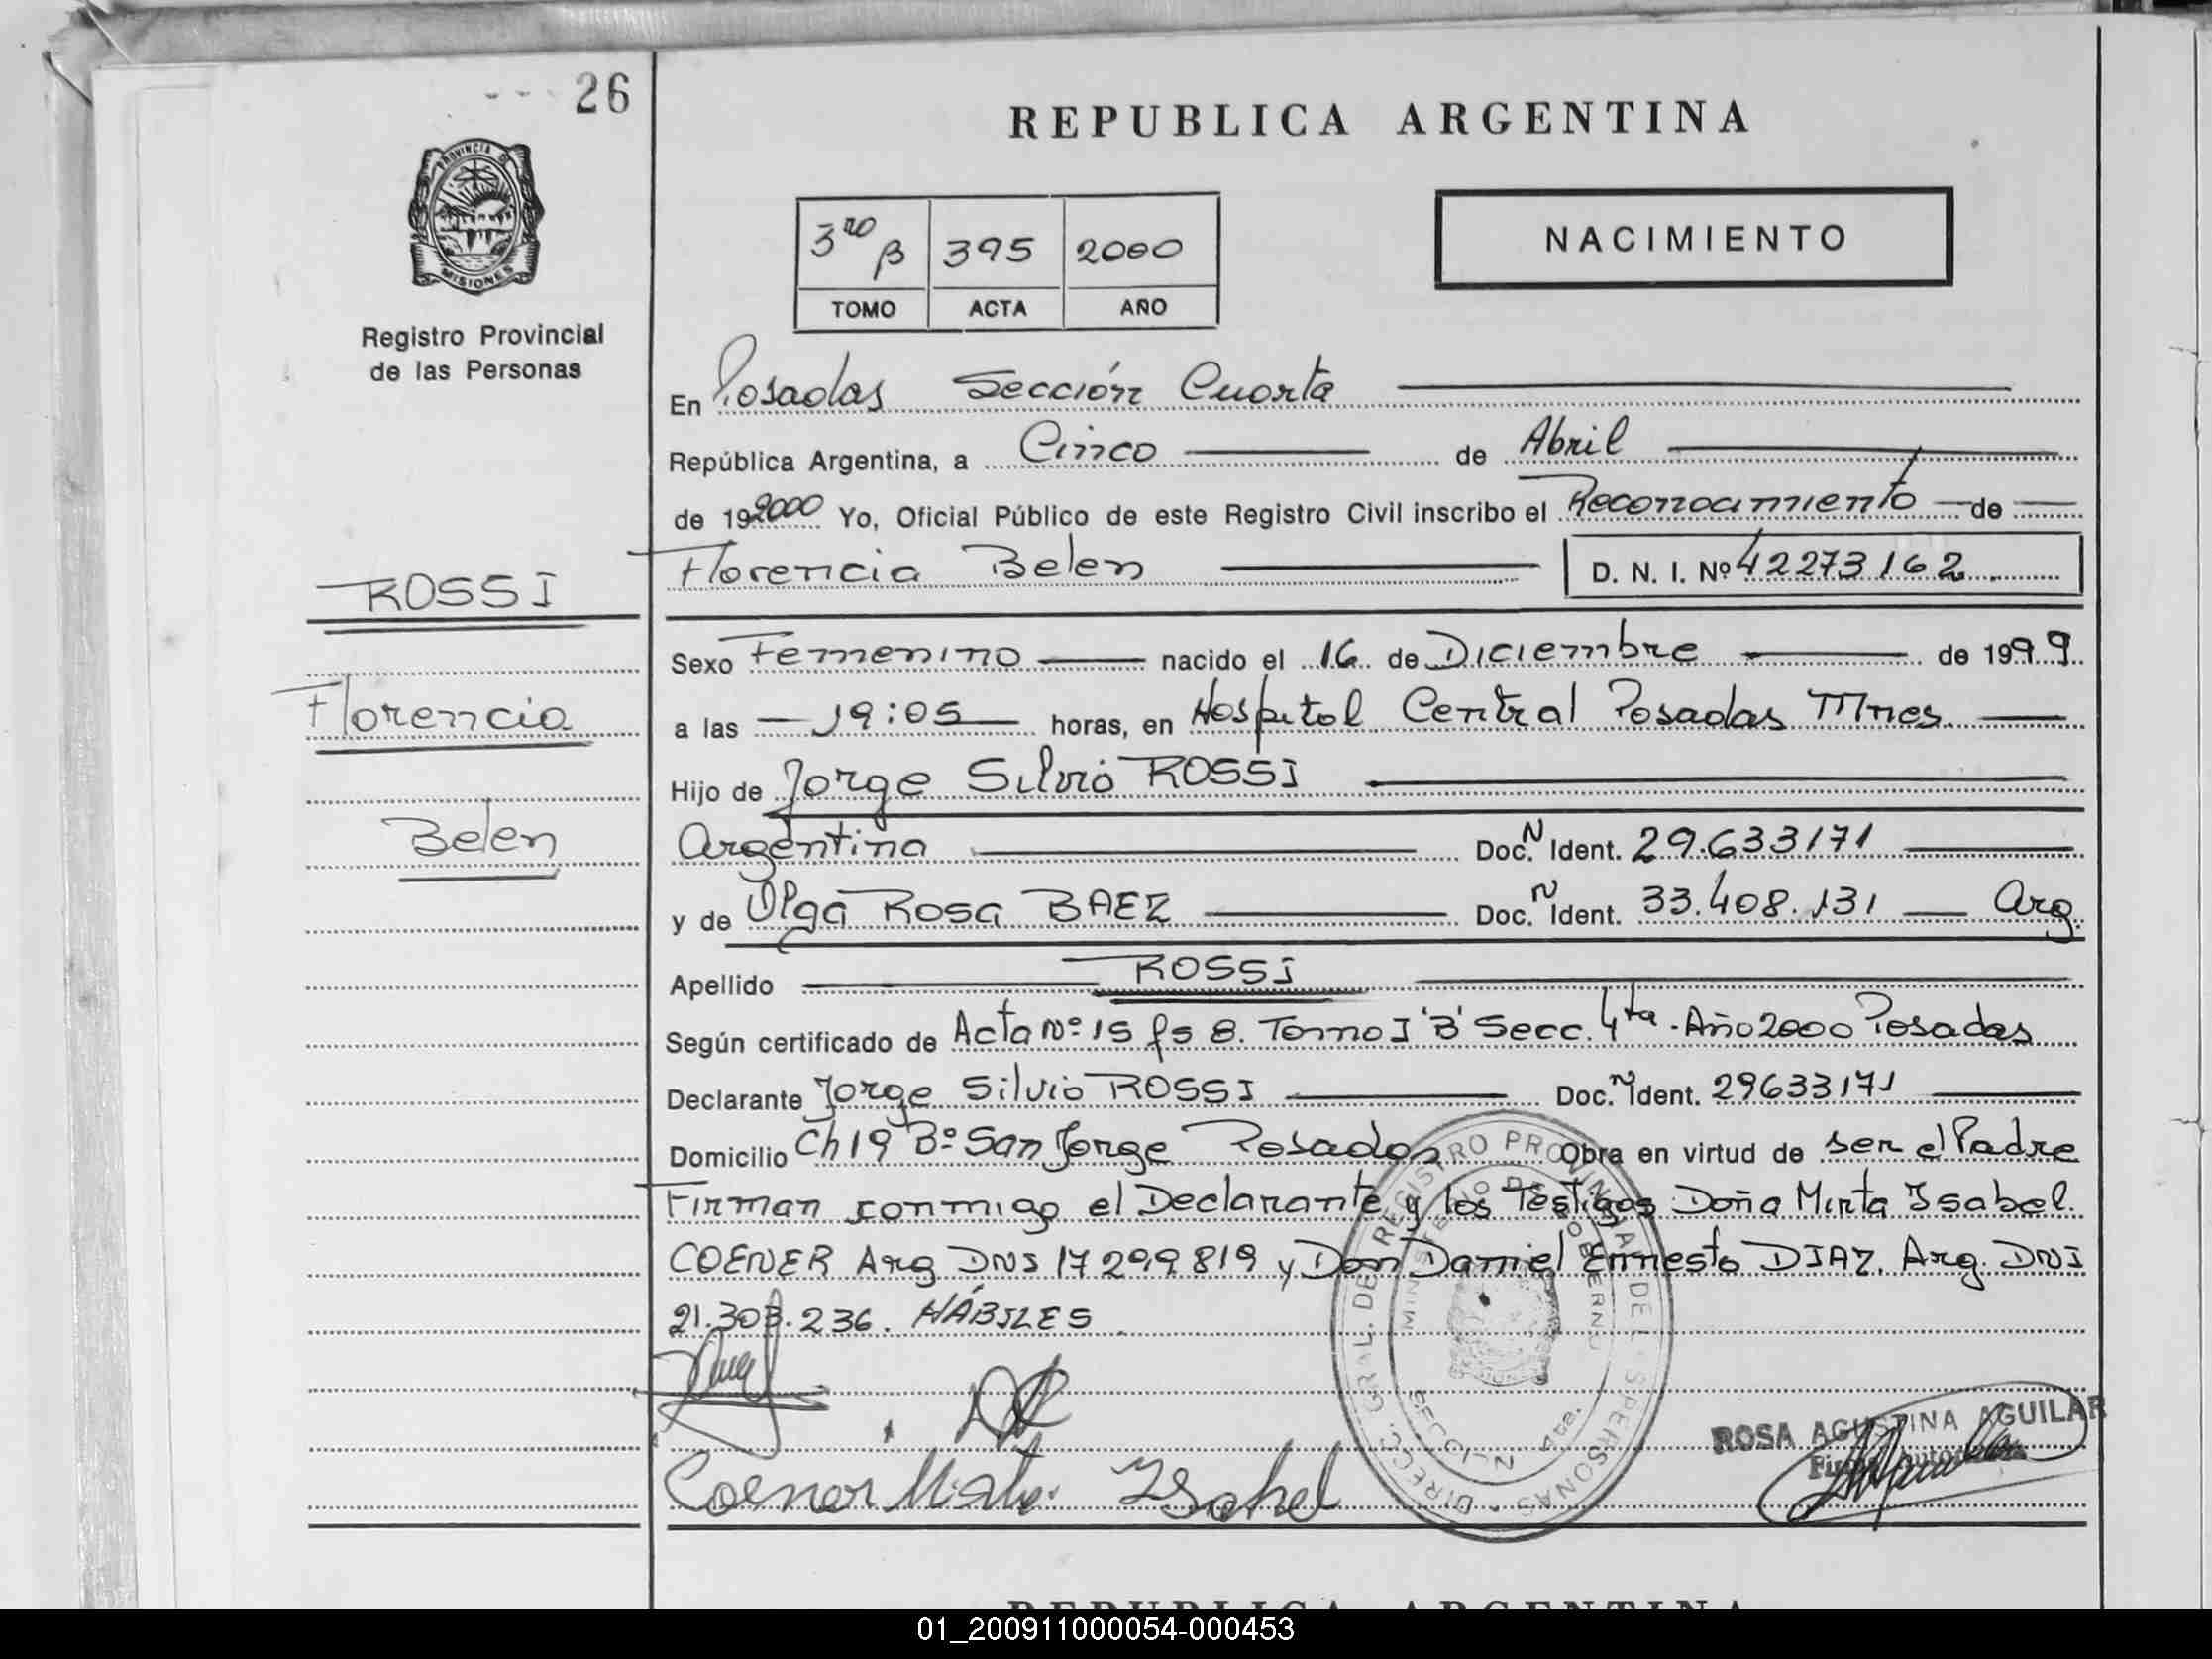 26
REPUBLICA ARGENTINA
PROVINCIA DE
MISIONES
3ro B 395 2000
TOMO ACTA AÑO
NACIMIENTO
Registro Provincial
de las Personas
En Posadas Sección Cuarta
República Argentina, a Cinco de Abril
de 192000 Yo, Oficial Público de este Registro Civil inscribo el Reconocimiento de
Florencia Belen D. N. I. Nº 42273162
ROSSI
Sexo Femenino nacido el 16 de Diciembre de 1999
Florencia
a las 19:05 horas, en Hospital Central Posadas Mnes.
Hijo de Jorge Silvio ROSSI
Belen
Argentina Doc. N Ident. 29.633171
y de Olga Rosa BAEZ Doc. N Ident. 33.408.131 Arg.
Apellido ROSSI
Según certificado de Acta Nº 15 fs 8. Tomo I 'B' Secc. 4ta. Año 2000 Posadas
Declarante Jorge Silvio ROSSI Doc. N Ident. 29633171
Domicilio Ch 19 Bº San Jorge Posadas Obra en virtud de ser el Padre
Firman conmigo el Declarante y los Testigos Doña Mirta Isabel
COENER Arg DNI 17299819 y Don Daniel Ernesto DIAZ. Arg. DNI
21.303.236. HÁBILES
DIREC. GRAL. DE REGISTRO PROVINCIAL DE LAS PERSONAS
MINISTERIO DE GOBIERNO
SECCION 4ta.
ROSA AGUSTINA AGUILAR
Firma Autorizada
Coener Mirta Isabel
REPUBLICA ARGENTINA
01_200911000054-000453